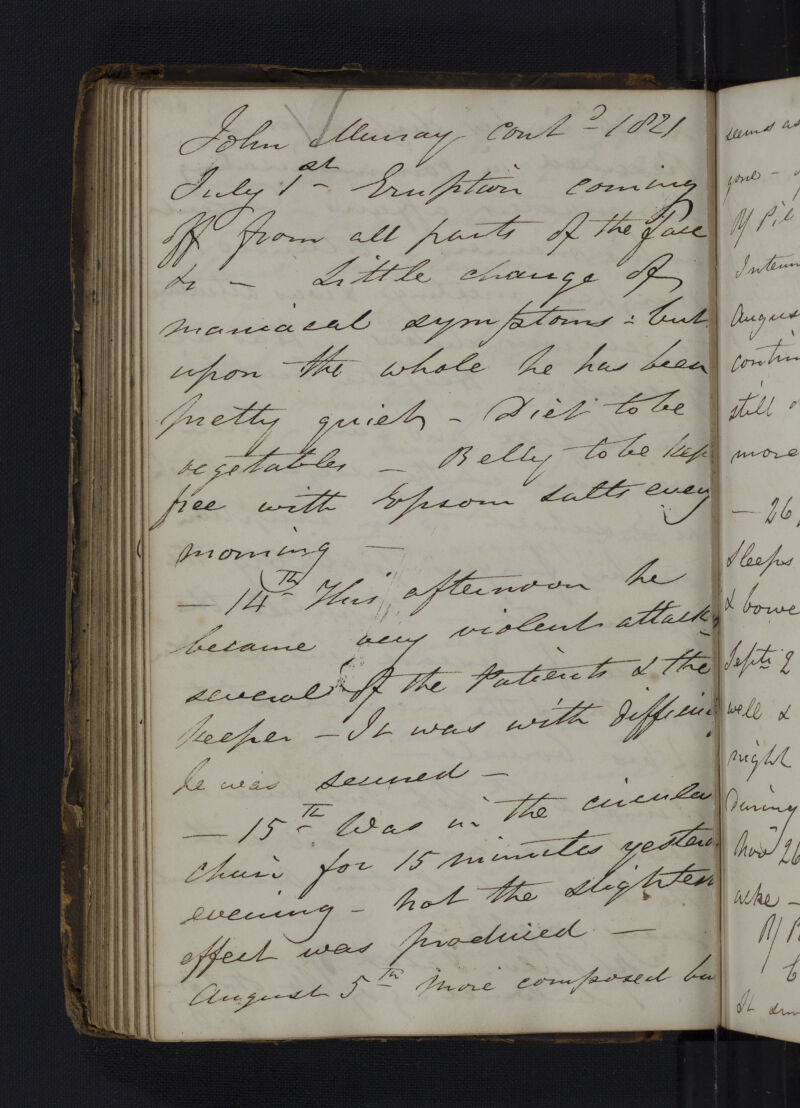 John Murray Cont^d 1821
July 1^st Eruption coming
off from all parts of the face
&c – Little change of
maniacal symptoms : but
upon the whole he has been
pretty quiet – Diet to be
vegetables – Belly to be kep
free with Epsom salts every
morning –
– 14^th This afternoon he
became very violent attack
several of the Patients & the
keeper – It was with difficul
he was secured –
– 15^th Was in the circular
chair for 15 minutes yester
evening – not the slightest
effect was produced –
August 5^th More composed bu
seems as
gone –
R/ Pil
Augus
contin
still
more
– 26
Sleeps
& bowe
Sept^r 2
well &
night
During
Nov^r 26
ache –
R/
It